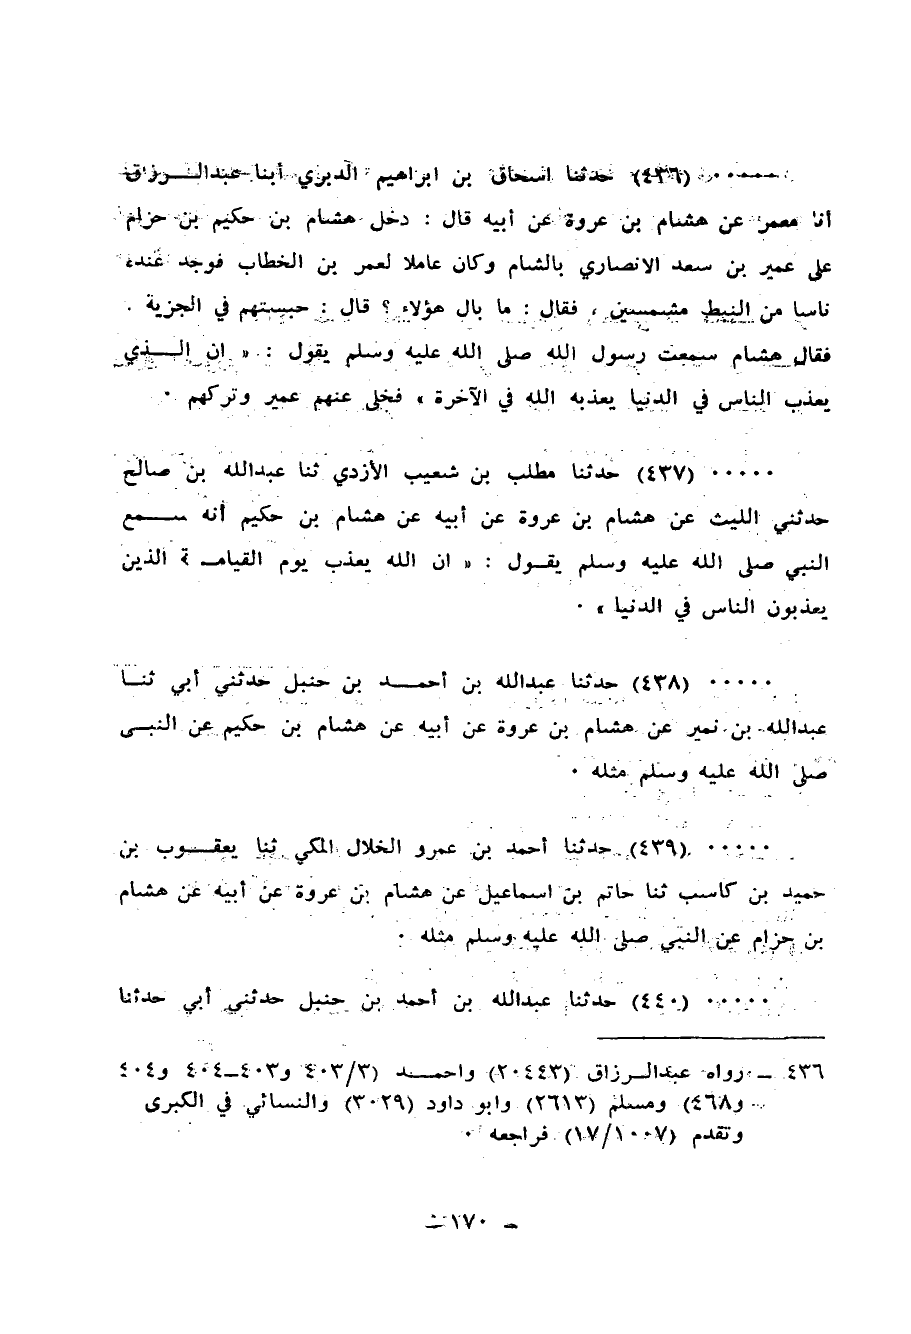 ..... (٤٣٦) حدثنا اسحاق بن ابراهيم الدبري أبنا عبدالـــرزاق
أنا معمر عن هشام بن عروة عن أبيه قال : دخل هشام بن حكيم بن حزام
على عمير بن سعد الانصاري بالشام وكان عاملا لعمر بن الخطاب فوجد عنده
ناسا من النبط مشمسين ، فقال : ما بال هؤلاء ؟ قال : حبستهم في الجزية .
فقال هشام سمعت رسول الله صلى الله عليه وسلم يقول : « ان الـــذي
يعذب الناس في الدنيا يعذبه الله في الآخرة » فخلى عنهم عمير وتركهم .
..... (٤٣٧) حدثنا مطلب بن شعيب الأزدي ثنا عبدالله بن صالح
حدثني الليث عن هشام بن عروة عن أبيه عن هشام بن حكيم أنه ســـمع
النبي صلى الله عليه وسلم يقــول : « ان الله يعذب يوم القيامــة الذين
يعذبون الناس في الدنيا » .
..... (٤٣٨) حدثنا عبدالله بن أحمـــد بن حنبل حدثني أبي ثنــا
عبدالله بن نمير عن هشام بن عروة عن أبيه عن هشام بن حكيم عن النبــي
صلى الله عليه وسلم مثله .
..... (٤٣٩) حدثنا أحمد بن عمرو الخلال المكي ثنا يعقــوب بن
حميد بن كاسب ثنا حاتم بن اسماعيل عن هشام بن عروة عن أبيه عن هشام
بن حزام عن النبي صلى الله عليه وسلم مثله .
..... (٤٤٠) حدثنا عبدالله بن أحمد بن حنبل حدثني أبي حدثنا
٤٣٦ ــ رواه عبدالــرزاق (٢٠٤٤٣) واحمـــد (٤٠٣/٣ و٤٠٣ــ٤٠٤ و٤٠٤
و٤٦٨) ومسلم (٢٦١٣) وابو داود (٣٠٢٩) والنسائي في الكبرى
وتقدم (١٧/١٠٠٧) فراجعه .
ــ ١٧٠ ــ